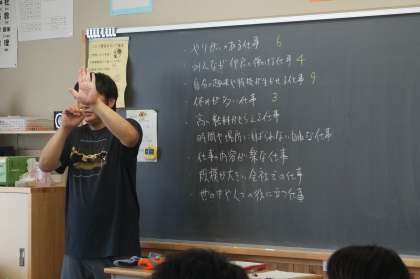 ・やりがいのある仕事 6
・みんなが仲良く働ける仕事 4
・自分の趣味や特技が生かせる仕事 9
・休みが多い仕事 3
・高い給料がもらえる仕事
・時間や場所にしばられない自由な仕事
・仕事内容が楽な仕事
・規模が大きい会社での仕事
・世の中や人々の役に立つ仕事
理